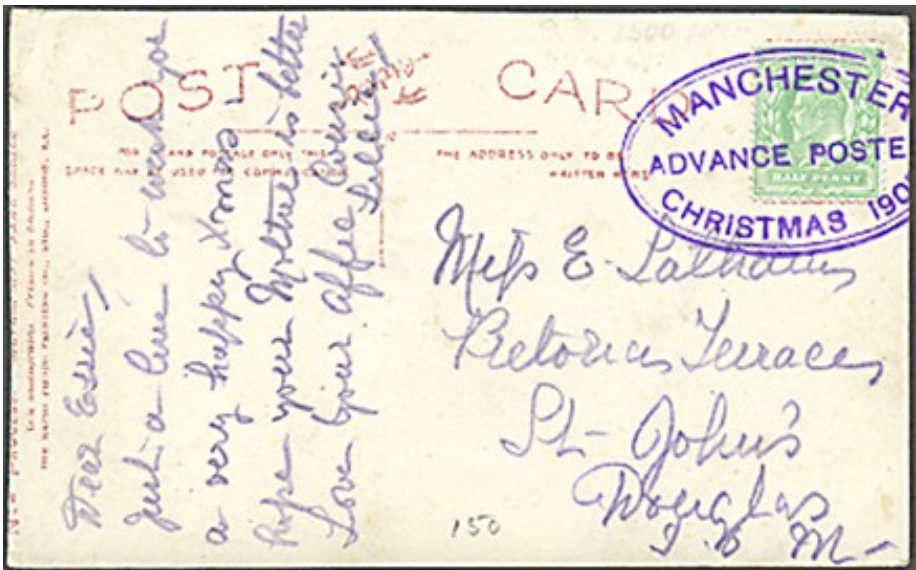 POST CARD
FOR INLAND POSTAGE ONLY THIS
SPACE MAY BE USED FOR COMMUNICATION
THE ADDRESS ONLY TO BE
WRITTEN HERE
MANCHESTER
ADVANCE POSTE
CHRISTMAS 190
HALF PENNY
Dear Essie,
Just a line to wish you
a very happy Xmas
hope your Mother is better
Love Your Affec Cousin
Miss E.
Pretoria Terrace
St. John's
Douglas
I. o M
150